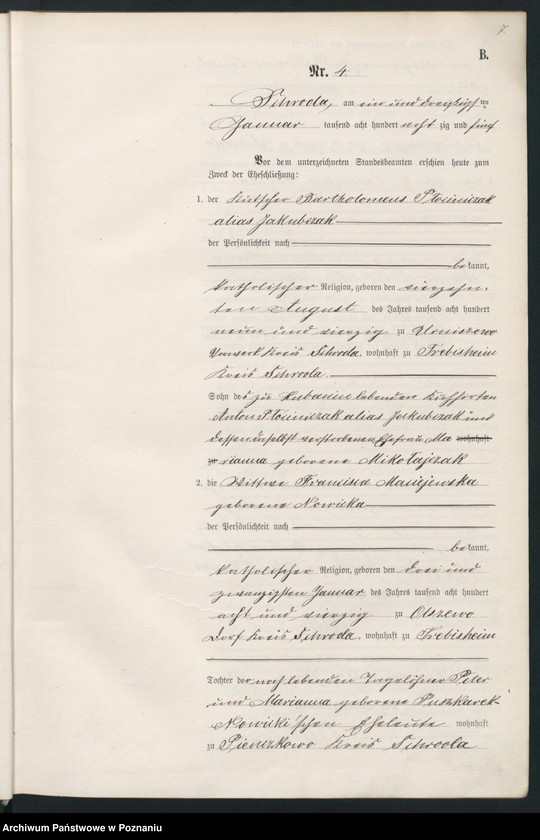 7
B.
Nr. 4.
Schroda, am ein und dreizigsten
Januar tausend acht hundert achtzig und fünf
Vor dem unterzeichneten Standesbeamten erschien heute zum
Zweck der Eheschließung:
1. der Kutscher Bartholomeus Płociniczak
alias Jakubczak
der Persönlichkeit nach
bekannt,
katholischer Religion, geboren den vierzehn-
ten August des Jahres tausend acht hundert
neun und vierzig zu Urniszewo
Vorwerk Kreis Schroda, wohnhaft zu Trebisheim
Kreis Schroda.
Sohn des zu lebenden
Anton Płociniczak alias Jakubczak und
dessen daselbst verstorbenen Ehefrau Ma wohnhaft
zu rianna geborene Mikołajczak
2. die Wittwe Francisca Maciejewska
geborene Nowicka
der Persönlichkeit nach
bekannt,
katholischer Religion, geboren den drei und
zwanzigsten Januar des Jahres tausend acht hundert
acht und vierzig zu Olszewo
Dorf Kreis Schroda, wohnhaft zu Trebisheim
Tochter der noch lebenden Tagelöhner Peter
und Marianna geborene Puszkarek-
Nowicki'schen Eheleute wohnhaft
zu Pienczkowo Kreis Schroda
Archiwum Państwowe w Poznaniu